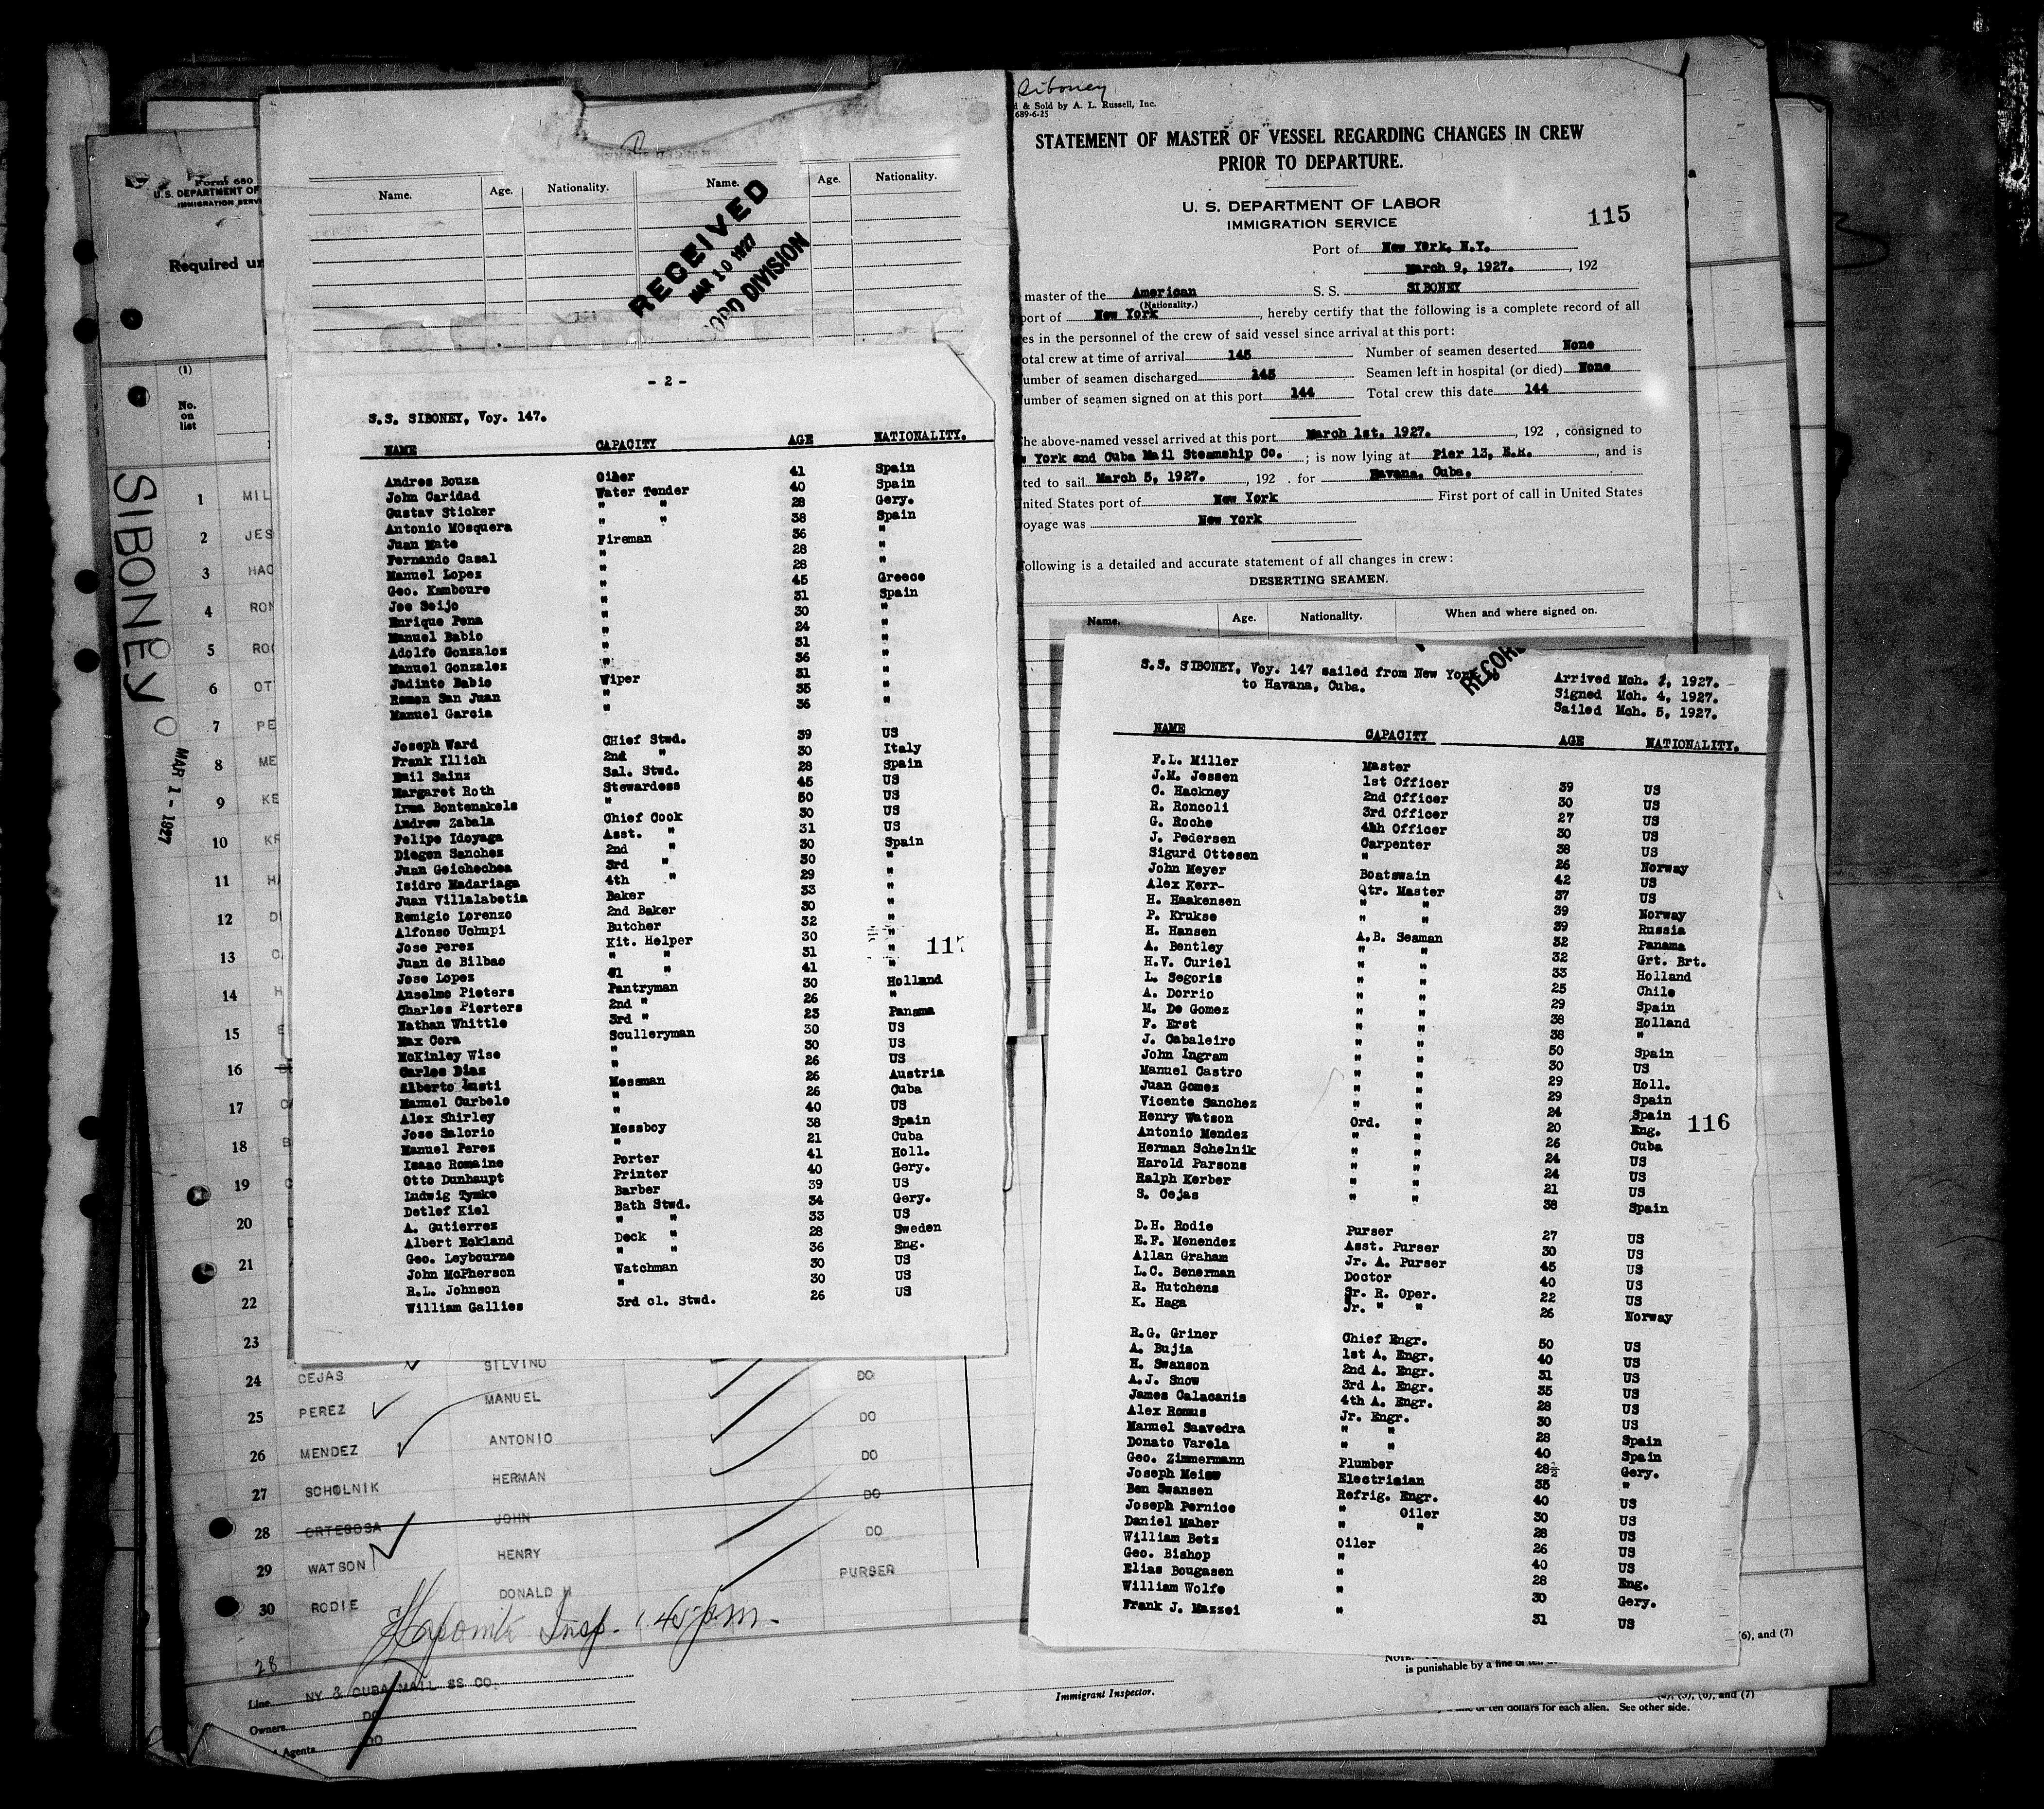 Form 680
U. S. DEPARTMENT OF
IMMIGRATION SERVI
Required un
(1)
No.
on
list
SIBONEY
MAR 1 - 1927
1 MIL
2 JES
3 HAC
4 RON
5 ROC
6 OT
7 PE
8 ME
9 KE
10 KR
11 HA
12 D
13
14 H
15
16
17
18 B
19
20
21
22
23
24 CEJAS SILVINO DO
25 PEREZ MANUEL DO
26 MENDEZ ANTONIO DO
27 SCHOLNIK HERMAN DO
28 ORTEGOSA JOHN DO
29 WATSON HENRY
30 RODIE DONALD H PURSER
Insp. 1 45 pm.
28
Line NY & CUBA MAIL SS CO.
Owners DO
Agents DO
Immigrant Inspector.
Name. Age. Nationality. Name. Age. Nationality.
RECEIVED
MAR 10 1927
ORD DIVISION
- 2 -
S.S. SIBONEY, Voy. 147.
NAME CAPACITY AGE NATIONALITY.
Andres Bouza Oiler 41 Spain
John Caridad Water Tender 40 Spain
Gustav Sticker " " 28 Gery.
Antonio MOsquera " " 38 Spain
Juan Mato Fireman 36 "
Fernando Casal " 28 "
Manuel Lopez " 28 "
Geo. Kamboure " 45 Greece
Joe Seijo " 31 Spain
Enrique Pena " 30 "
Manuel Babio " 24 "
Adolfo Gonzalez " 31 "
Manuel Gonzalez " 36 "
Jadinto Babio Wiper 31 "
Ramon San Juan " 35 "
Manuel Garcia " 36 "
Joseph Ward CHief Stwd. 39 US
Frank Illich 2nd " 30 Italy
Emil Sainz Sal. Stwd. 28 Spain
Margaret Roth Stewardess 45 US
Irma Bontenakels " 50 US
Andrew Zabala Chief Cook 30 US
Felipe Idoyaga Asst. " 31 US
Diegen Sanchez 2nd " 30 Spain
Juan Goichechea 3rd " 30 "
Isidro Madariaga 4th " 29 "
Juan Villalabetia Baker 33 "
Remigio Lorenzo 2nd Baker 30 "
Alfonso Uchupi Butcher 32 "
Jose Perez Kit. Helper 30 "
Juan de Bilbao " " 31 "
Jose Lopez " 41 "
Anselmo Pieters Pantryman 30 Holland
Charles Pierters 2nd " 26 "
Nathan Whittle 3rd " 23 Panama
Max Cora Sculleryman 30 US
McKinley Wise " 30 US
Carlos Diaz " 26 US
Alberto Lusti Messman 26 Austria
Manuel Curbelo " 26 Cuba
Alex Shirley " 40 US
Jose Salorio Messboy 38 Spain
Manuel Perez " 21 Cuba
Isaac Romaine Porter 41 Holl.
Otto Dunhaupt Printer 40 Gery.
Ludwig Tymke Barber 39 US
Detlef Kiel Bath Stwd. 34 Gery.
A. Gutierrez " " 33 US
Albert Eckland Deck " 28 Sweden
Geo. Leybourne " " 36 Eng.
John McPherson Watchman 30 US
R.L. Johnson " 30 US
William Gallies 3rd cl. Stwd. 26 US
117
Siboney
d & Sold by A. L. Russell, Inc.
689-6-25
STATEMENT OF MASTER OF VESSEL REGARDING CHANGES IN CREW
PRIOR TO DEPARTURE.
U. S. DEPARTMENT OF LABOR
IMMIGRATION SERVICE
115
Port of New York, N.Y.
March 9, 1927. , 192
master of the American S. S. SIBONEY
(Nationality.)
port of New York , hereby certify that the following is a complete record of all
es in the personnel of the crew of said vessel since arrival at this port:
otal crew at time of arrival 145 Number of seamen deserted None
umber of seamen discharged 145 Seamen left in hospital (or died) None
umber of seamen signed on at this port 144 Total crew this date 144
he above-named vessel arrived at this port March 1st, 1927. , 192 , consigned to
w York and Cuba Mail Steamship Co. ; is now lying at Pier 13, E.R. , and is
ted to sail March 5, 1927. , 192 . for Havana, Cuba.
nited States port of New York First port of call in United States
oyage was New York
ollowing is a detailed and accurate statement of all changes in crew:
DESERTING SEAMEN.
Name. Age. Nationality. When and where signed on.
RECORD
S.S. SIBONEY, Voy. 147 sailed from New York
to Havana, Cuba.
Arrived Mch. 1, 1927.
Signed Mch. 4, 1927.
Sailed Mch. 5, 1927.
NAME CAPACITY AGE NATIONALITY.
F.L. Miller Master
J.M. Jessen 1st Officer 39 US
C. Hackney 2nd Officer 30 US
R. Roncoli 3rd Officer 27 US
G. Roche 4th Officer 30 US
J. Pedersen Carpenter 38 US
Sigurd Ottesen " 26 Norway
John Meyer Boatswain 42 US
Alex Kerr- Qtr. Master 37 US
H. Haakensen " " 39 Norway
P. Krukse " " 39 Russia
H. Hansen A.B. Seaman 32 Panama
A. Bentley " " 32 Grt. Brt.
H.V. Curiel " " 33 Holland
L. Segoris " " 25 Chile
A. Dorrio " " 29 Spain
M. De Gomez " " 38 Holland
F. Erst " " 38 "
J. Cabaleiro " " 50 Spain
John Ingram " " 30 US
Manuel Castro " " 29 Holl.
Juan Gomez " " 29 Spain
Vicente Sanchez " " 24 Spain
Henry Watson Ord. " 20 Eng.
Antonio Mendez " " 26 Cuba
Herman Schelnik " " 24 US
Harold Parsons " " 24 US
Ralph Kerber " " 21 US
S. Cejas " " 38 Spain
116
D.H. Rodie Purser 27 US
E.F. Menendez Asst. Purser 30 US
Allan Graham Jr. A. Purser 45 US
L.C. Benerman Doctor 40 US
R. Hutchens Sr. R. Oper. 22 US
K. Haga Jr. " " 26 Norway
R.G. Griner Chief Engr. 50 US
A. Bujia 1st A. Engr. 40 US
H. Swanson 2nd A. Engr. 31 US
A.J. Snow 3rd A. Engr. 35 US
James Calacanis 4th A. Engr. 28 US
Alex Romus Jr. Engr. 30 US
Manuel Saavedra " " 28 Spain
Donato Varela " " 40 Spain
Geo. Zimmermann Plumber 28 Gery.
Joseph Meier Electrician 35 "
Ben Swansen Refrig. Engr. 40 US
Joseph Pernice " Oiler 30 US
Daniel Maher " " 28 US
William Betz Oiler 26 US
Geo. Bishop " 40 US
Elias Bougasen " 28 Eng.
William Wolfe " 30 Gery.
Frank J. Mazzei " 31 US
(6), and (7)
NOTE.
is punishable by a fine of ten
(2), (5), (6), and (7)
of ten dollars for each alien. See other side.